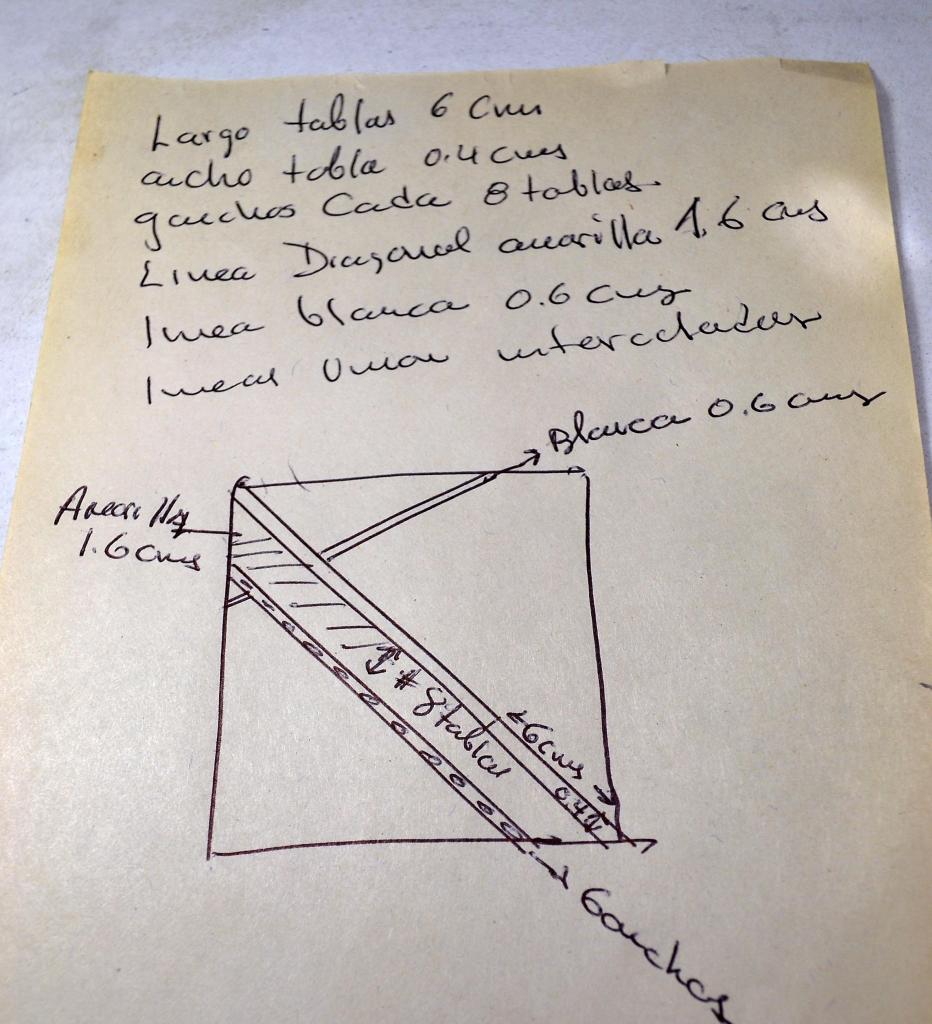 Largo tablas 6 cms
ancho tabla 0.4 cms
ganchos Cada 8 tablas.
Linea Diagonal amarilla 1.6 cms
linea blanca 0.6 cms
lineas Union intercaladas
Blanca 0.6 cms
Amarilla
1.6 cms
# 8 tablas
6 cms
0.4
Ganchos